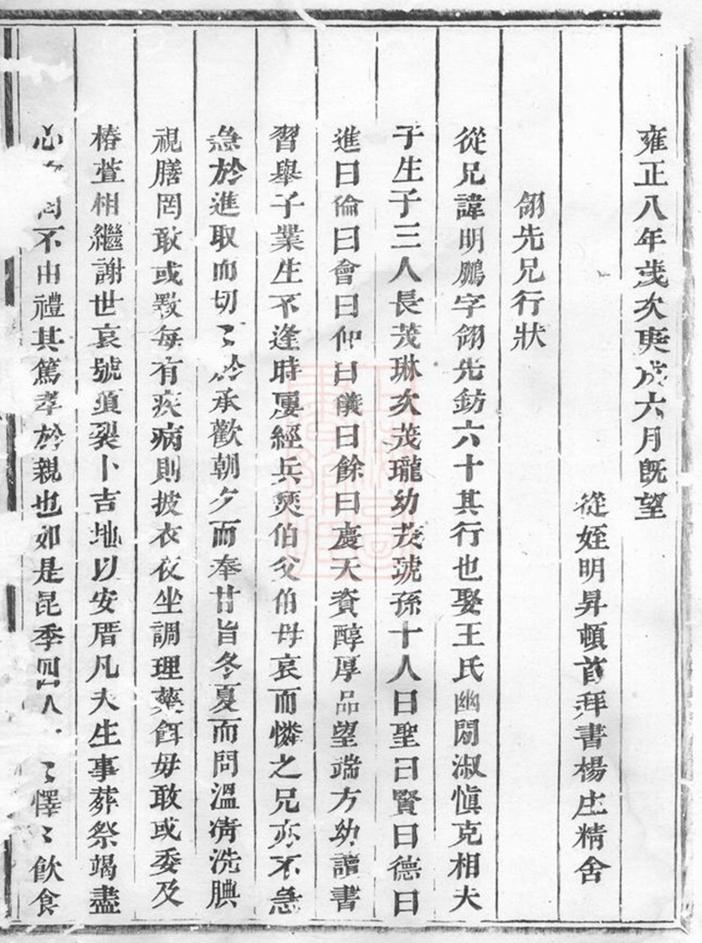 雍正八年歲次庚戌六月旣望
從姪明昇頓首拜書楊庄精舍
翎先兄行狀
從兄諱明鵬字翎先鈁六十其行也娶王氏幽閒淑慎克相夫
子生子三人長茂琳次茂瓏幼茂琥孫十人曰聖曰賢曰德曰
進曰倫曰會曰仲曰儀曰餘曰慶天資醇厚品望端方幼讀書
習舉子業生不逢時屢經兵燹伯父伯母哀而憐之兄亦不急
急於進取而切〻於承歡朝夕而奉甘旨冬夏而問溫凊洗腆
視膳罔敢或斁每有疾病則披衣夜坐調理藥餌毋敢或委及
椿萱相繼謝世哀號須裂卜吉地以安厝凡夫生事葬祭竭盡
心不由禮其篤孝於親也如是昆季四人〻懌〻飲食